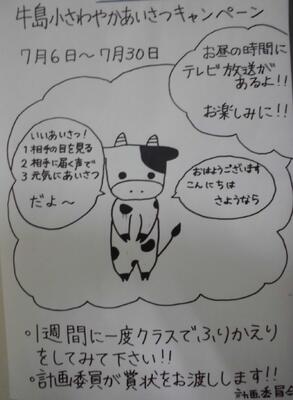 牛島小さわやかあいさつキャンペーン
7月6日～7月30日
お昼の時間に
テレビ放送が
あるよ!!
お楽しみに!!
いいあいさつ!
1 相手の目を見る
2 相手に届く声で
3 元気にあいさつ
だよ～
おはようございます
こんにちは
さようなら
○1週間に一度クラスでふりかえり
をしてみて下さい!!
○計画委員が賞状をお渡しします!!
計画委員会